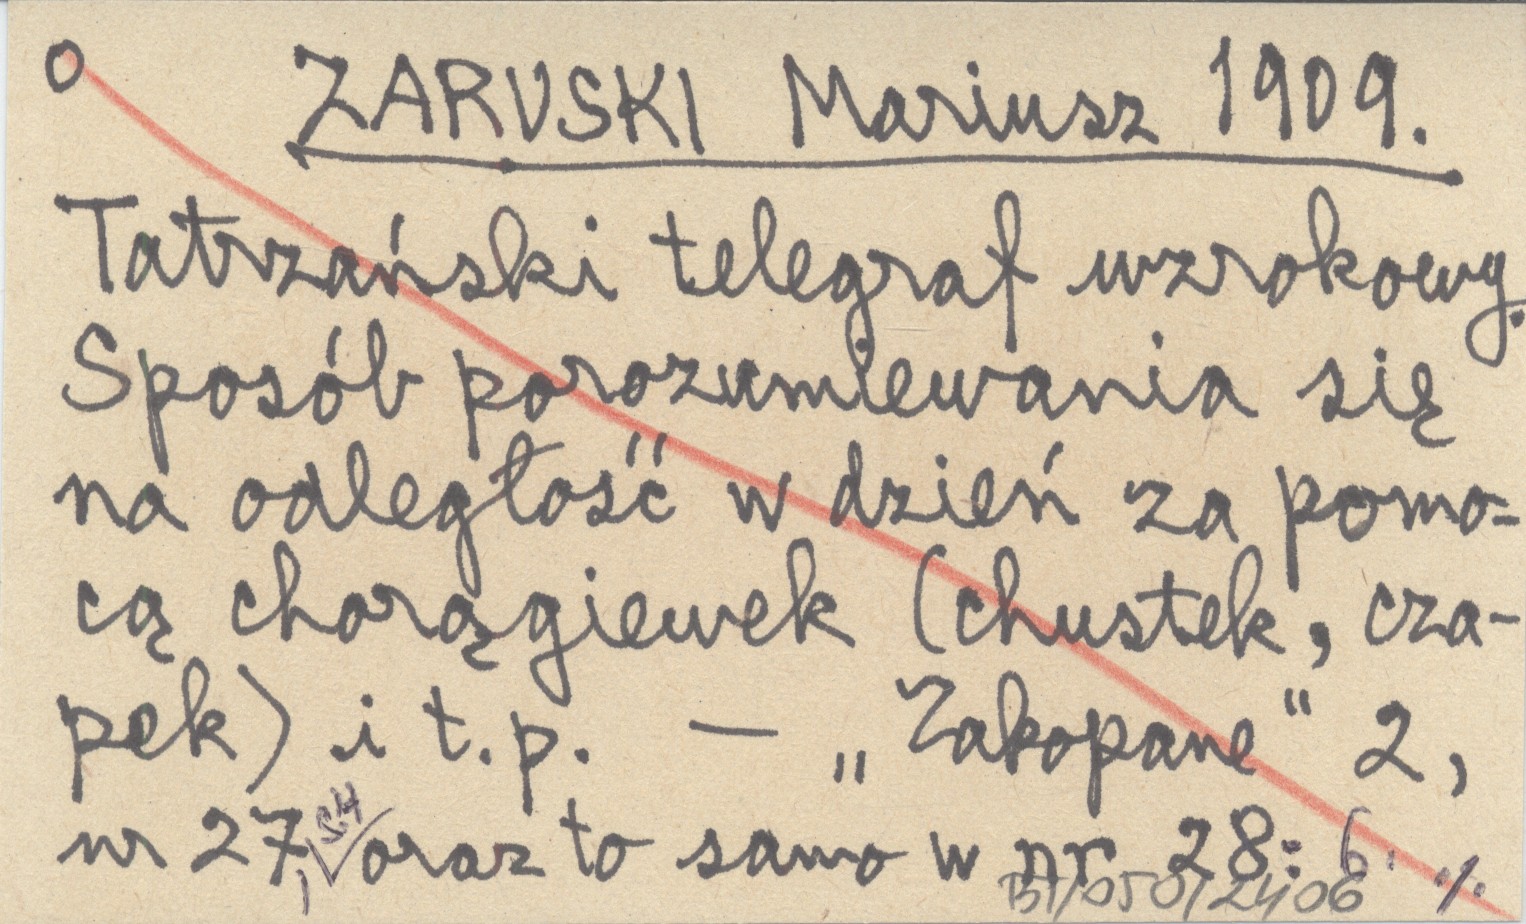 O ZARUSKI Mariusz 1909.
Tatrzański telegraf wzrokowy.
Sposób porozumiewania się
na odległość w dzień za pomo-
cą chorągiewek (chustek, cza-
pek) i t.p. — „Zakopane" 2,
nr 27, s.4 oraz to samo w nr 28: 6. ./.
BT/050/2406